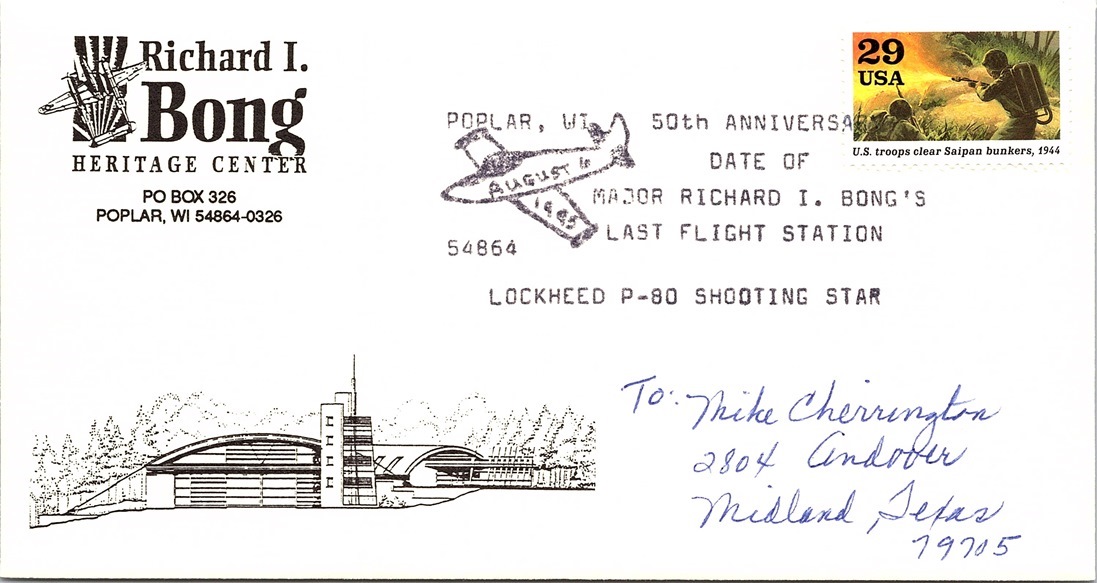 Richard I.
Bong
HERITAGE CENTER
PO BOX 326
POPLAR, WI 54864-0326
29
USA
U.S. troops clear Saipan bunkers, 1944
POPLAR, WI 50th ANNIVERSA
DATE OF
AUGUST 6
1995
MAJOR RICHARD I. BONG'S
LAST FLIGHT STATION
54864
LOCKHEED P-80 SHOOTING STAR
To: Mike Cherrington
2804 Andover
Midland, Texas
79705